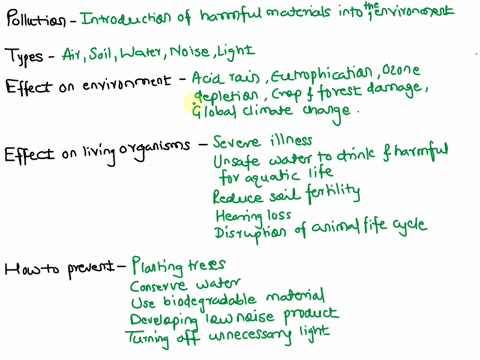 Pollution - Introduction of harmful materials into the environment
Types - Air, Soil, Water, Noise, Light
Effect on environment - Acid rain, Eutrophication, Ozone
depletion, Crop & forest damage,
Global climate change.
Effect on living organisms - Severe illness
Unsafe water to drink & harmful
for aquatic life
Reduce soil fertility
Hearing loss
Disruption of animal life cycle
How to prevent - Planting trees
Conserve water
Use biodegradable material
Developing low noise product
Turning off unnecessary light